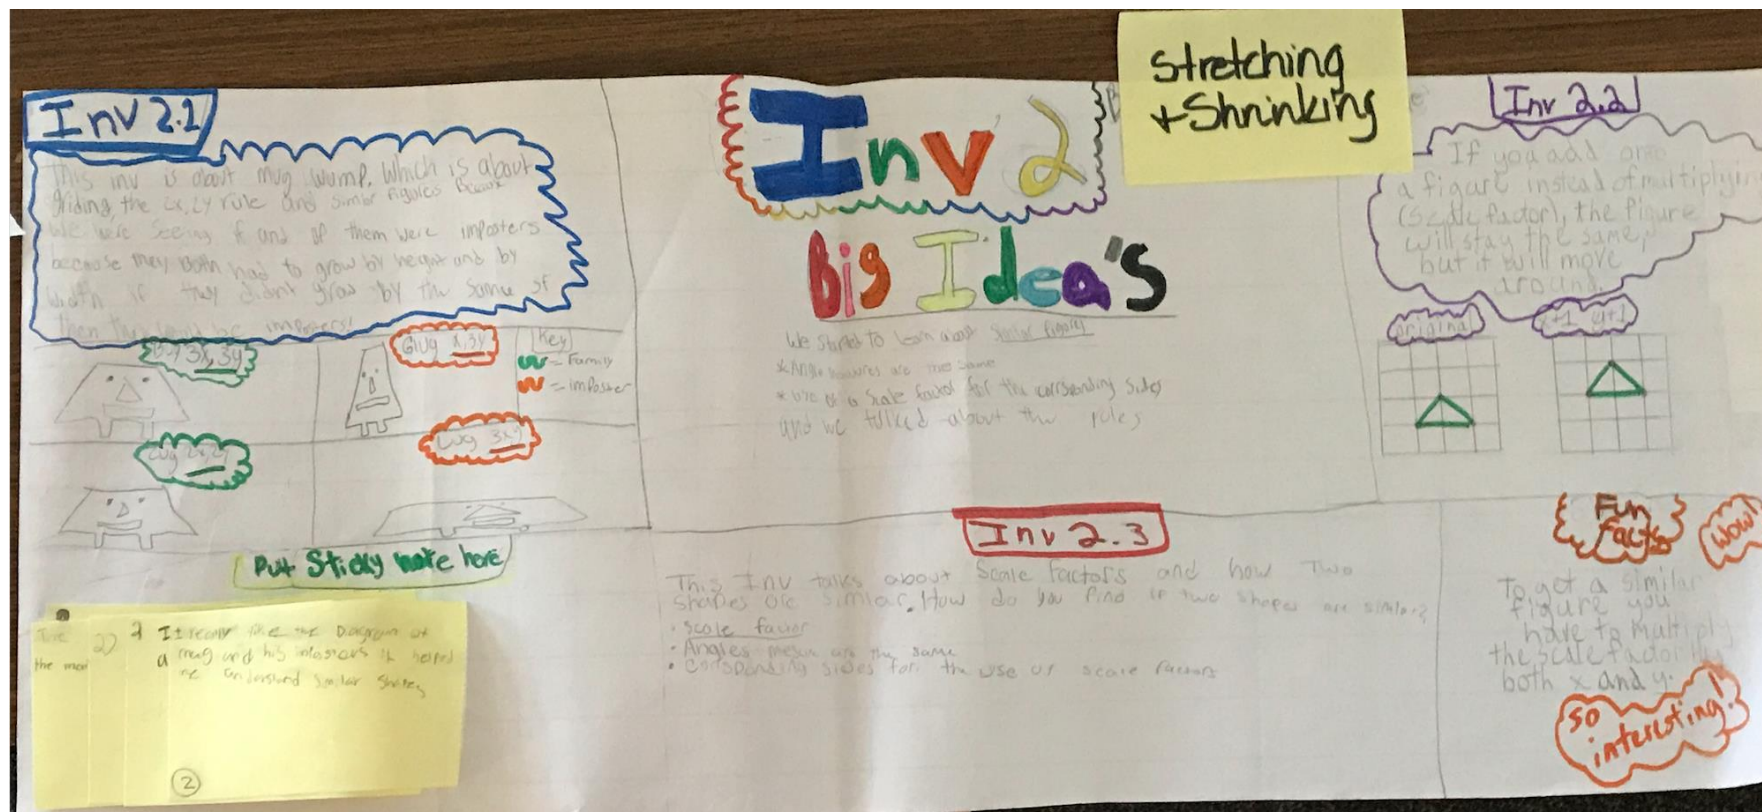 Stretching
+ Shrinking
Inv 2.1
This inv is about mug wump. Which is about
griding the rule and similar figures
We were seeing if and of them were imposters
because they both had to grow by height and by
width if they didn't grow by the same sf
then they be imposters!
3x, 3y
Glug x, 3y
Key
= Family
= imposter
2x, 2y
Lug 3x, y
Put Sticky note here
the
2)
I really like the Diagram of
a mug and his it helped
me understand similar shapes
2
Inv 2
Big Idea's
We started to learn about similar figures
* Angle measures are the same
* use of a scale factor for the sides
and we talked about the rules
Inv 2.2
If you add onto
a figure instead of multiplying
(scale factor), the figure
will stay the same,
but it will move
around.
original
x+1 y+1
Inv 2.3
This Inv talks about scale factors and how two
shapes are similar. How do you find if two shapes are similar?
• Scale factor
• Angles are the same
• sides for the use of scale factors
Fun
Facts
Wow!
To get a similar
figure you
have to multiply
the scale factor by
both x and y.
So
interesting!